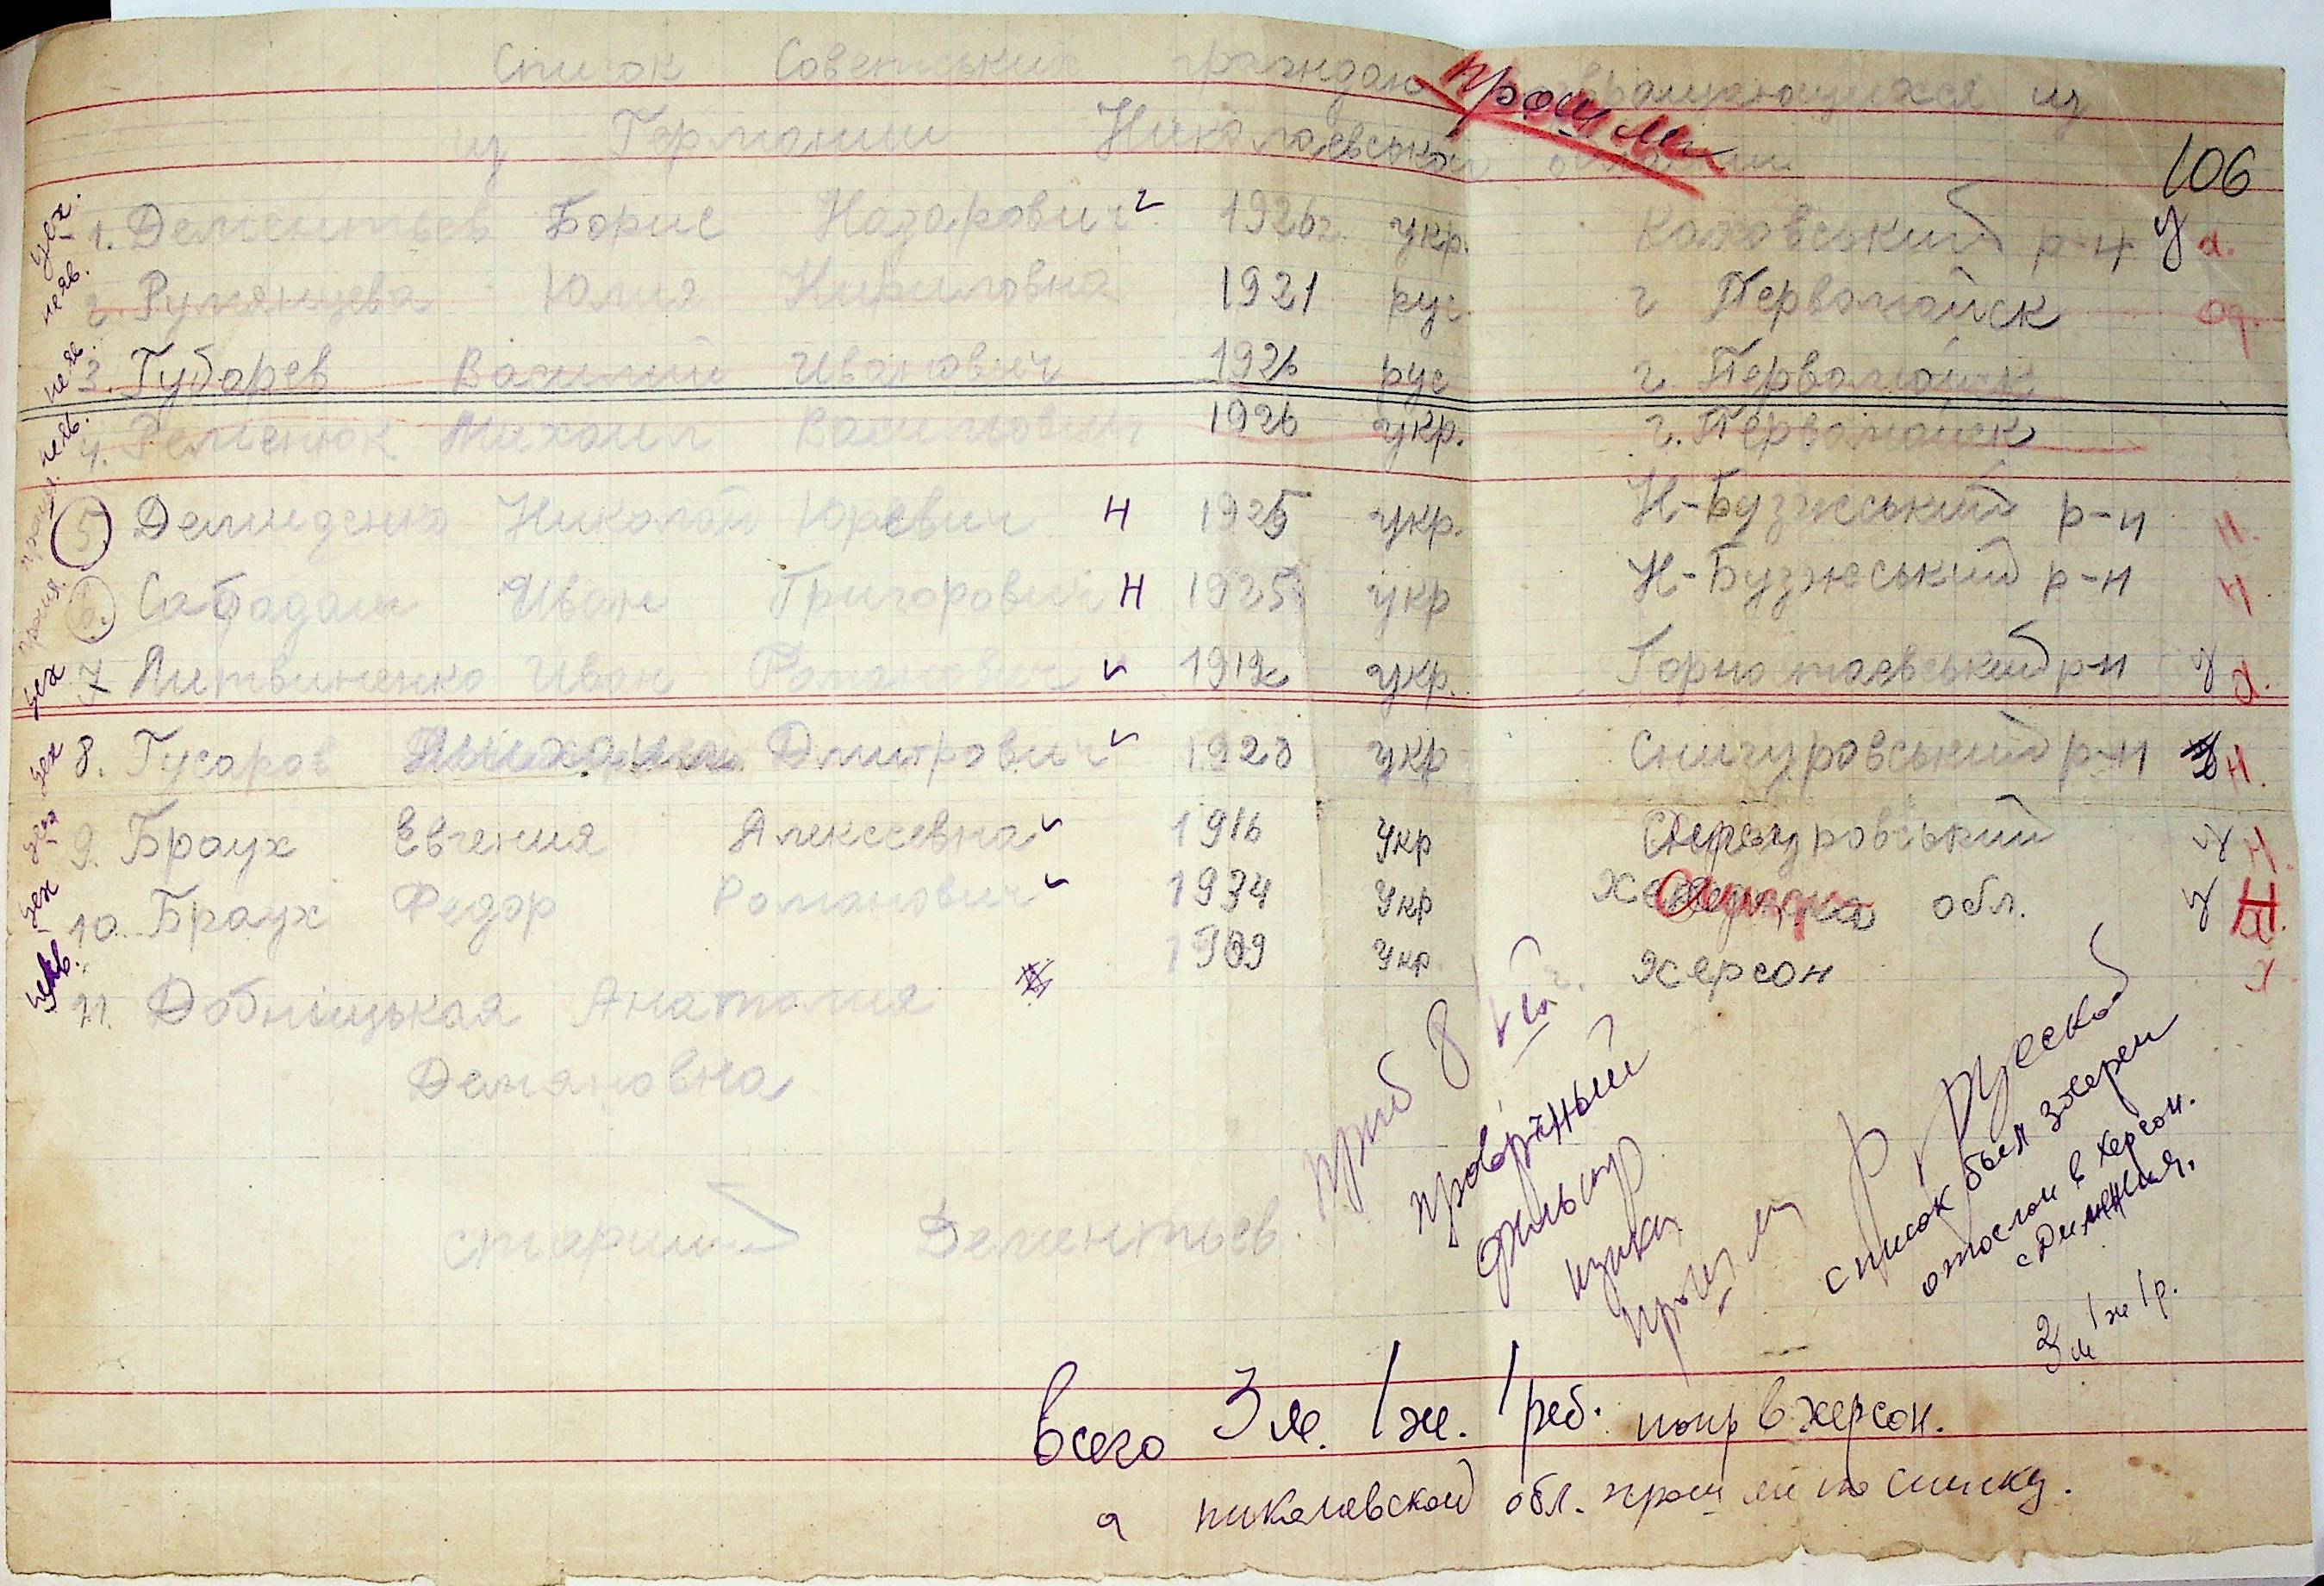 Список Советських граждан возвращающихся из
из Германии Николаевськой области
прошли
106
1. Дементьев Борис Назарович 1926г. укр. Каховський р-н у х.
2. Румянцева Юлия Кириловна 1921 рус. г Первомайск од.
3. Губарев Василий Иванович 1926 рус г. Первомайск
4. Семенюк Михаил Васильович 1926 укр. г. Первомайск
5. Демиденко Николай Юревич н 1925 укр. Н-Бузжський р-н н.
6. Сабадаш Иван Григорович н 1925 укр Н-Бузжський р-н н.
7 Литвиненко Иван Романович 1912 укр. Горностаевський р-н у х.
8. Гусаров Дмитрович 1923 укр Снигуровський р-н н.
9. Браух Евгения Алексеевна 1916 укр у н.
10. Браух Федор Романович 1934 укр обл. у
11. Добніцькая Анатолия 1909 укр Херсон х
Демяновна
старший Дементьев.
приб 8
проверенный
фильтр
прошли
список был
отослан в херсон.
3 м 1 ж 1 р.
Всего 3 м. 1 ж. 1 реб. напр в херсон.
а николаевской обл. прошли по списку.